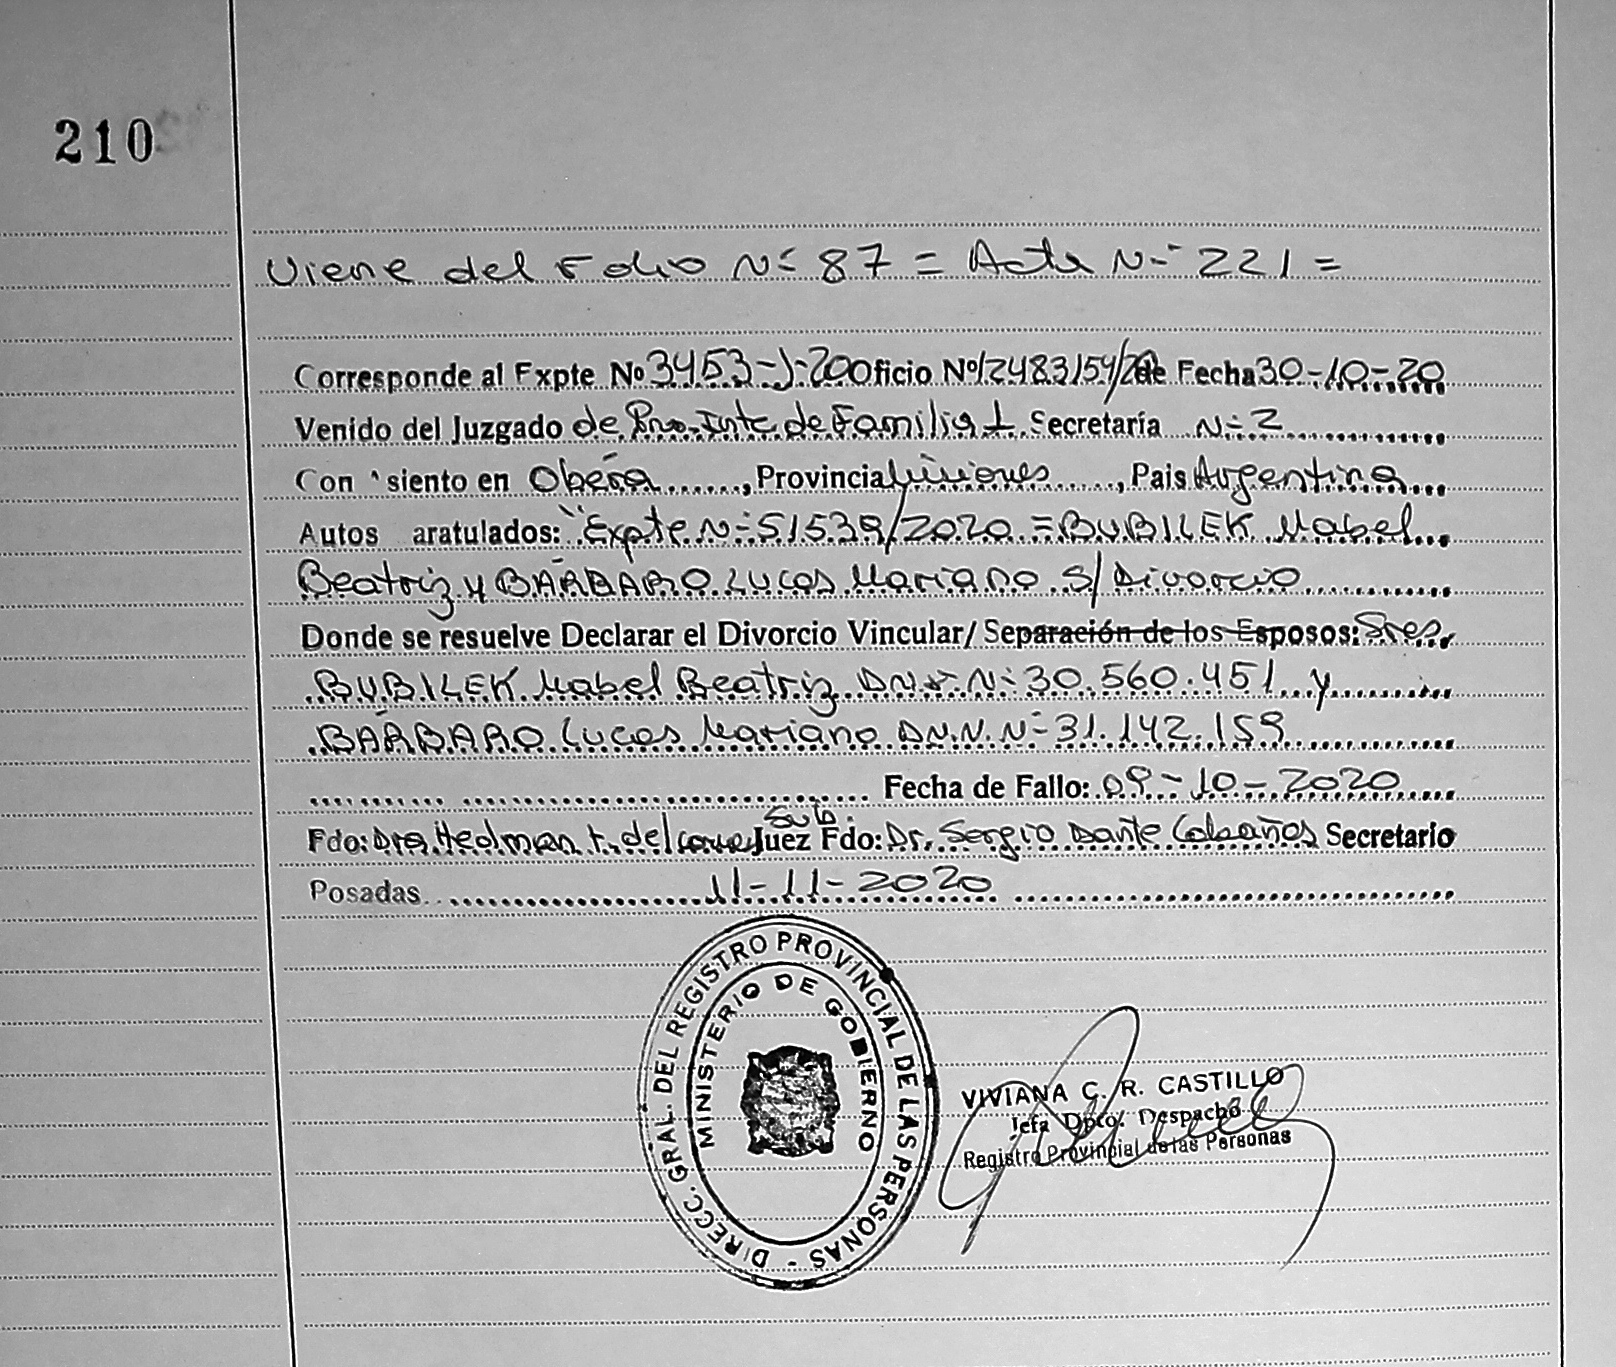 210
Viene del Folio Nº 87 = Acta Nº 221 =
Corresponde al Expte Nº 3453-J-20 Oficio Nº 12483154/20 de Fecha 30-10-20
Venido del Juzgado de Pra. Inte de Familia 1. Secretaría Nº 2
Con siento en Oberá, Provincia Misiones, Pais Argentina
Autos aratulados: "Expte Nº 51539/2020 = BUBILEK Mabel
Beatriz y BÁRBARO Lucas Mariano S/ Divorcio
Donde se resuelve Declarar el Divorcio Vincular/ Separación de los Esposos: Sres.
BUBILEK Mabel Beatriz DNI Nº 30.560.451 y
BÁRBARO Lucas Mariano D.N.N. Nº 31.142.159
Fecha de Fallo: 09-10-2020
Sub.
Fdo: Dra. Hedman del Juez Fdo: Dr. Sergio Dante Secretario
Posadas 11-11-2020
DIRECC. GRAL. DEL REGISTRO PROVINCIAL DE LAS PERSONAS -
MINISTERIO DE GOBIERNO
VIVIANA C. R. CASTILLO
Jefa Dpto. Despacho
Registro Provincial de las Personas